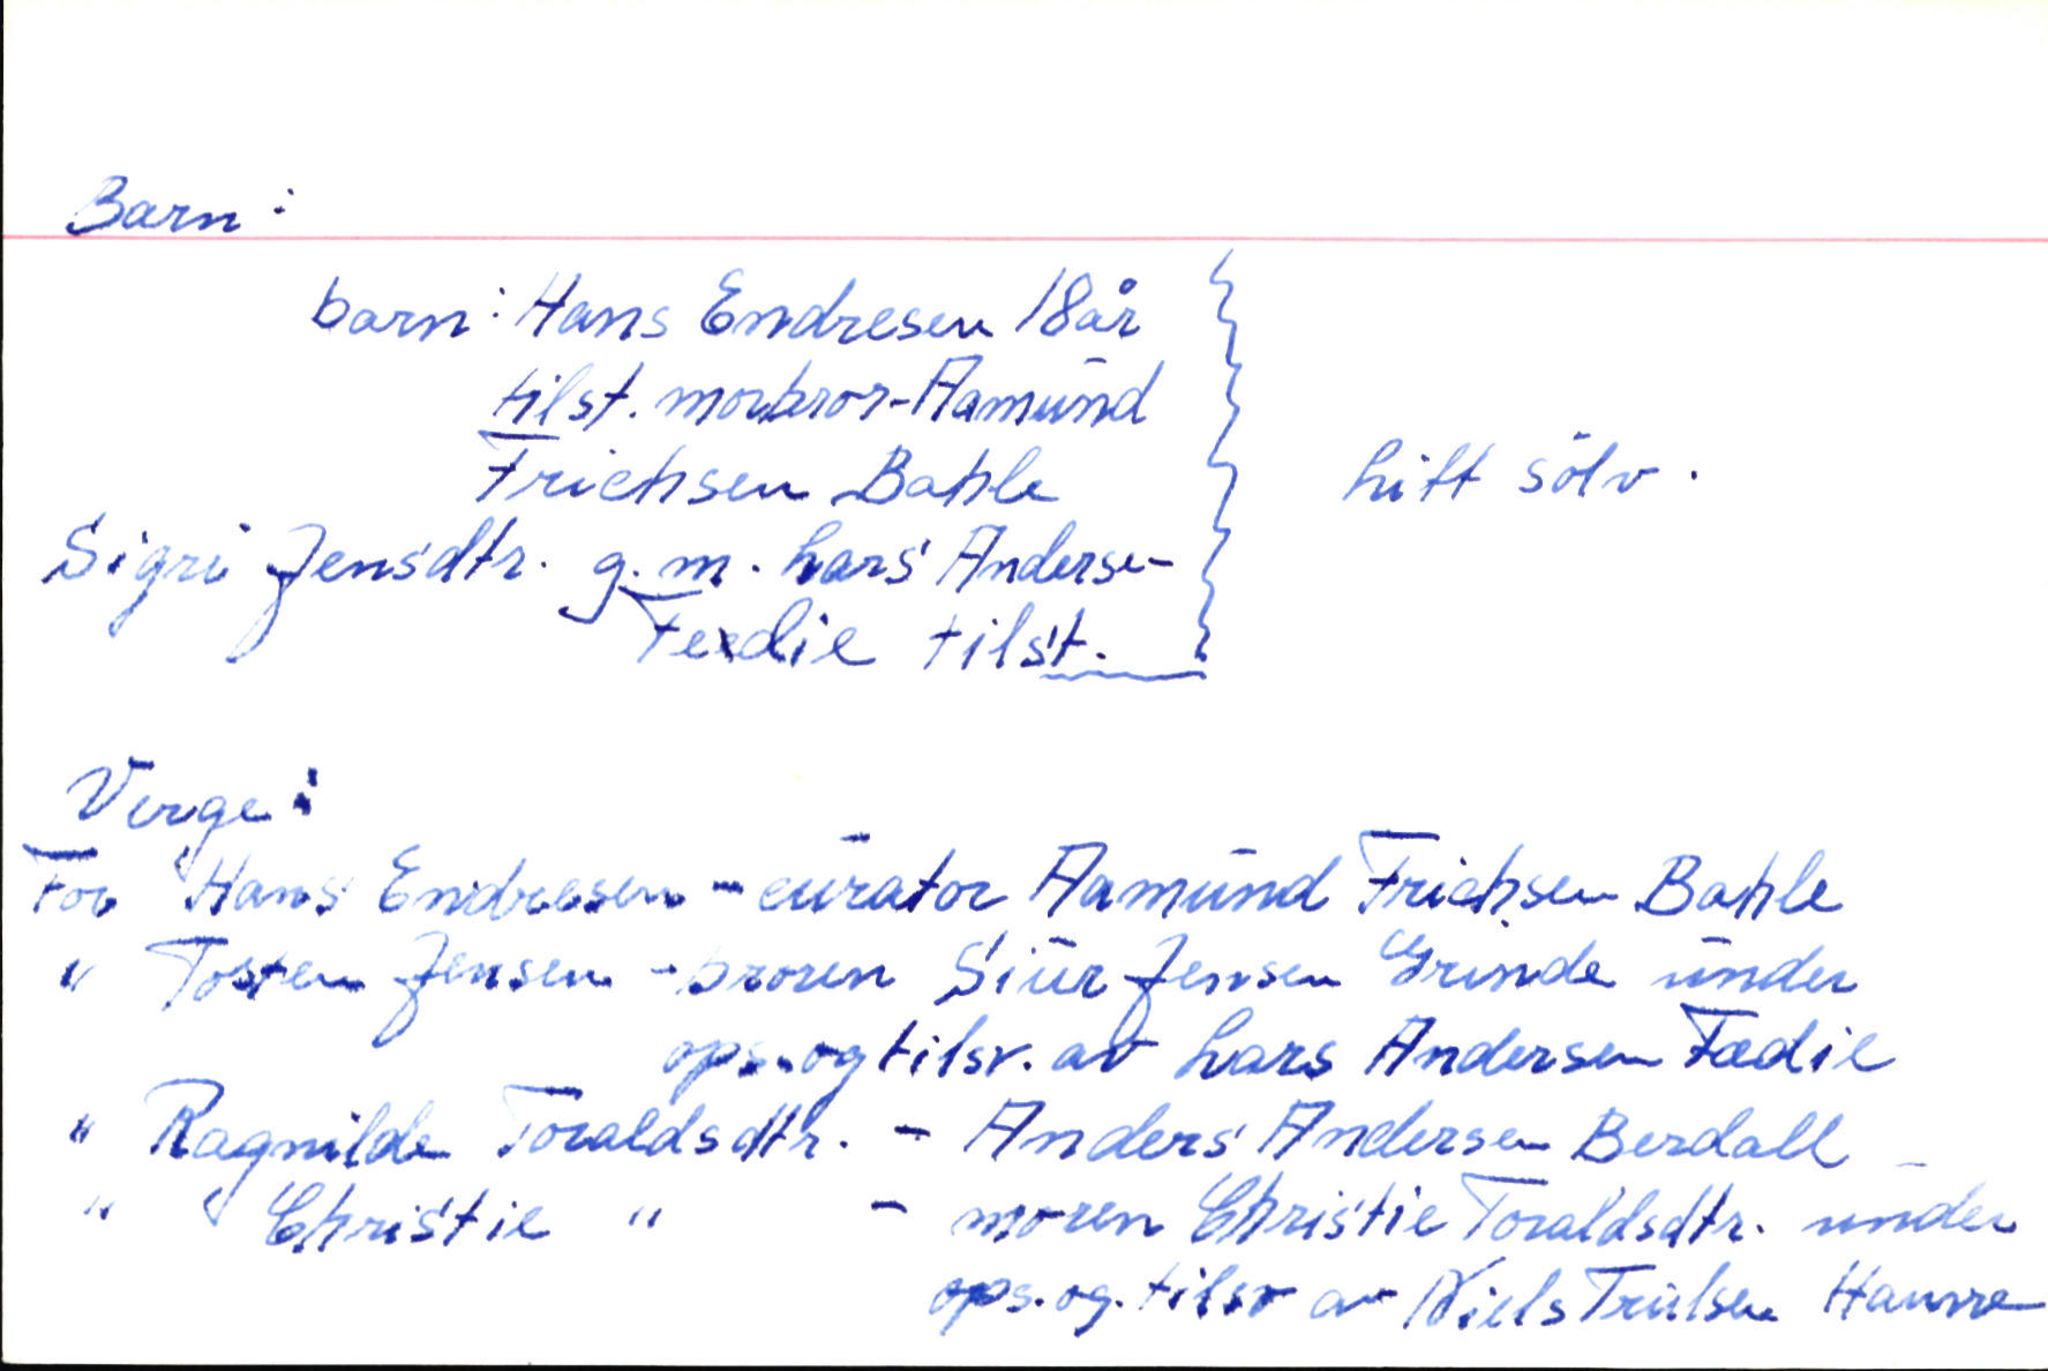 Barn:
barn: Hans Endresen 18 år
tilst. morbror - Aamund
Frichsen Bahle
litt sölv.
Sigri Jensdtr. g.m. Lars Andersen
Fedie tilst.
Verge:
For Hans Endresen - curator Aamund Frichsen Bahle
" Tosten Jensen - broren Siur Jensen Grinde under
ops. og tilsv. av Lars Andersen Fædie
" Ragnilde Toraldsdtr. - Anders Andersen Berdall
" Christie " - moren Christie Toraldsdtr. under
ops. og. tilsv av Niels Trulsen